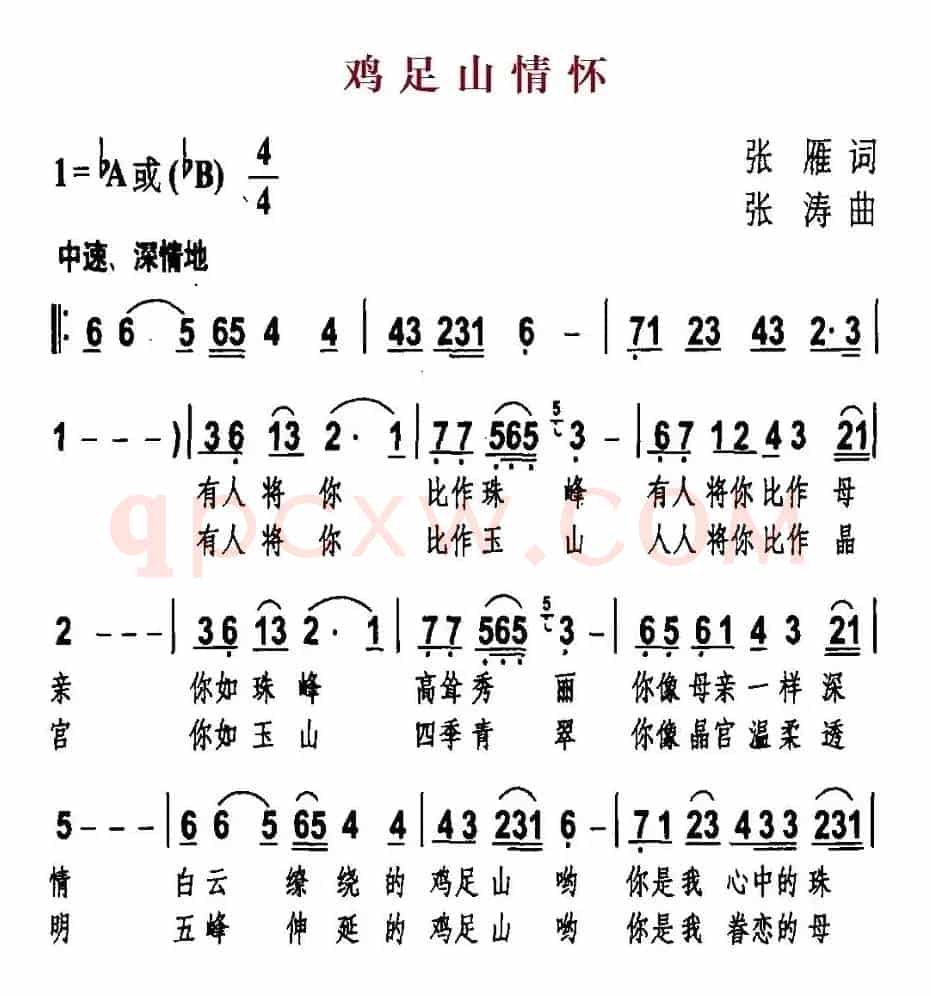 鸡足山情怀
1=♭A或(♭B) 4/4
张 雁 词
张 涛 曲
中速、深情地
‖: 6 6 5 65 4 4 | 43 231 6 - | 71 23 43 2·3 |
1 - - - ) | 36 13 2· 1 | 77 565 5 3 - | 67 12 43 21 |
有人将你 比作珠峰 有人将你比作母
有人将你 比作玉山 人人将你比作晶
qpcxw.com
2 - - - | 36 13 2· 1 | 77 565 5 3 - | 65 61 4 3 21 |
亲 你如珠峰 高耸秀丽 你像母亲一样深
宫 你如玉山 四季青翠 你像晶宫温柔透
5 - - - | 6 6 5 65 4 4 | 43 231 6 - | 71 23 433 231 |
情 白云缭绕的鸡足山哟 你是我心中的珠
明 五峰伸延的鸡足山哟 你是我眷恋的母